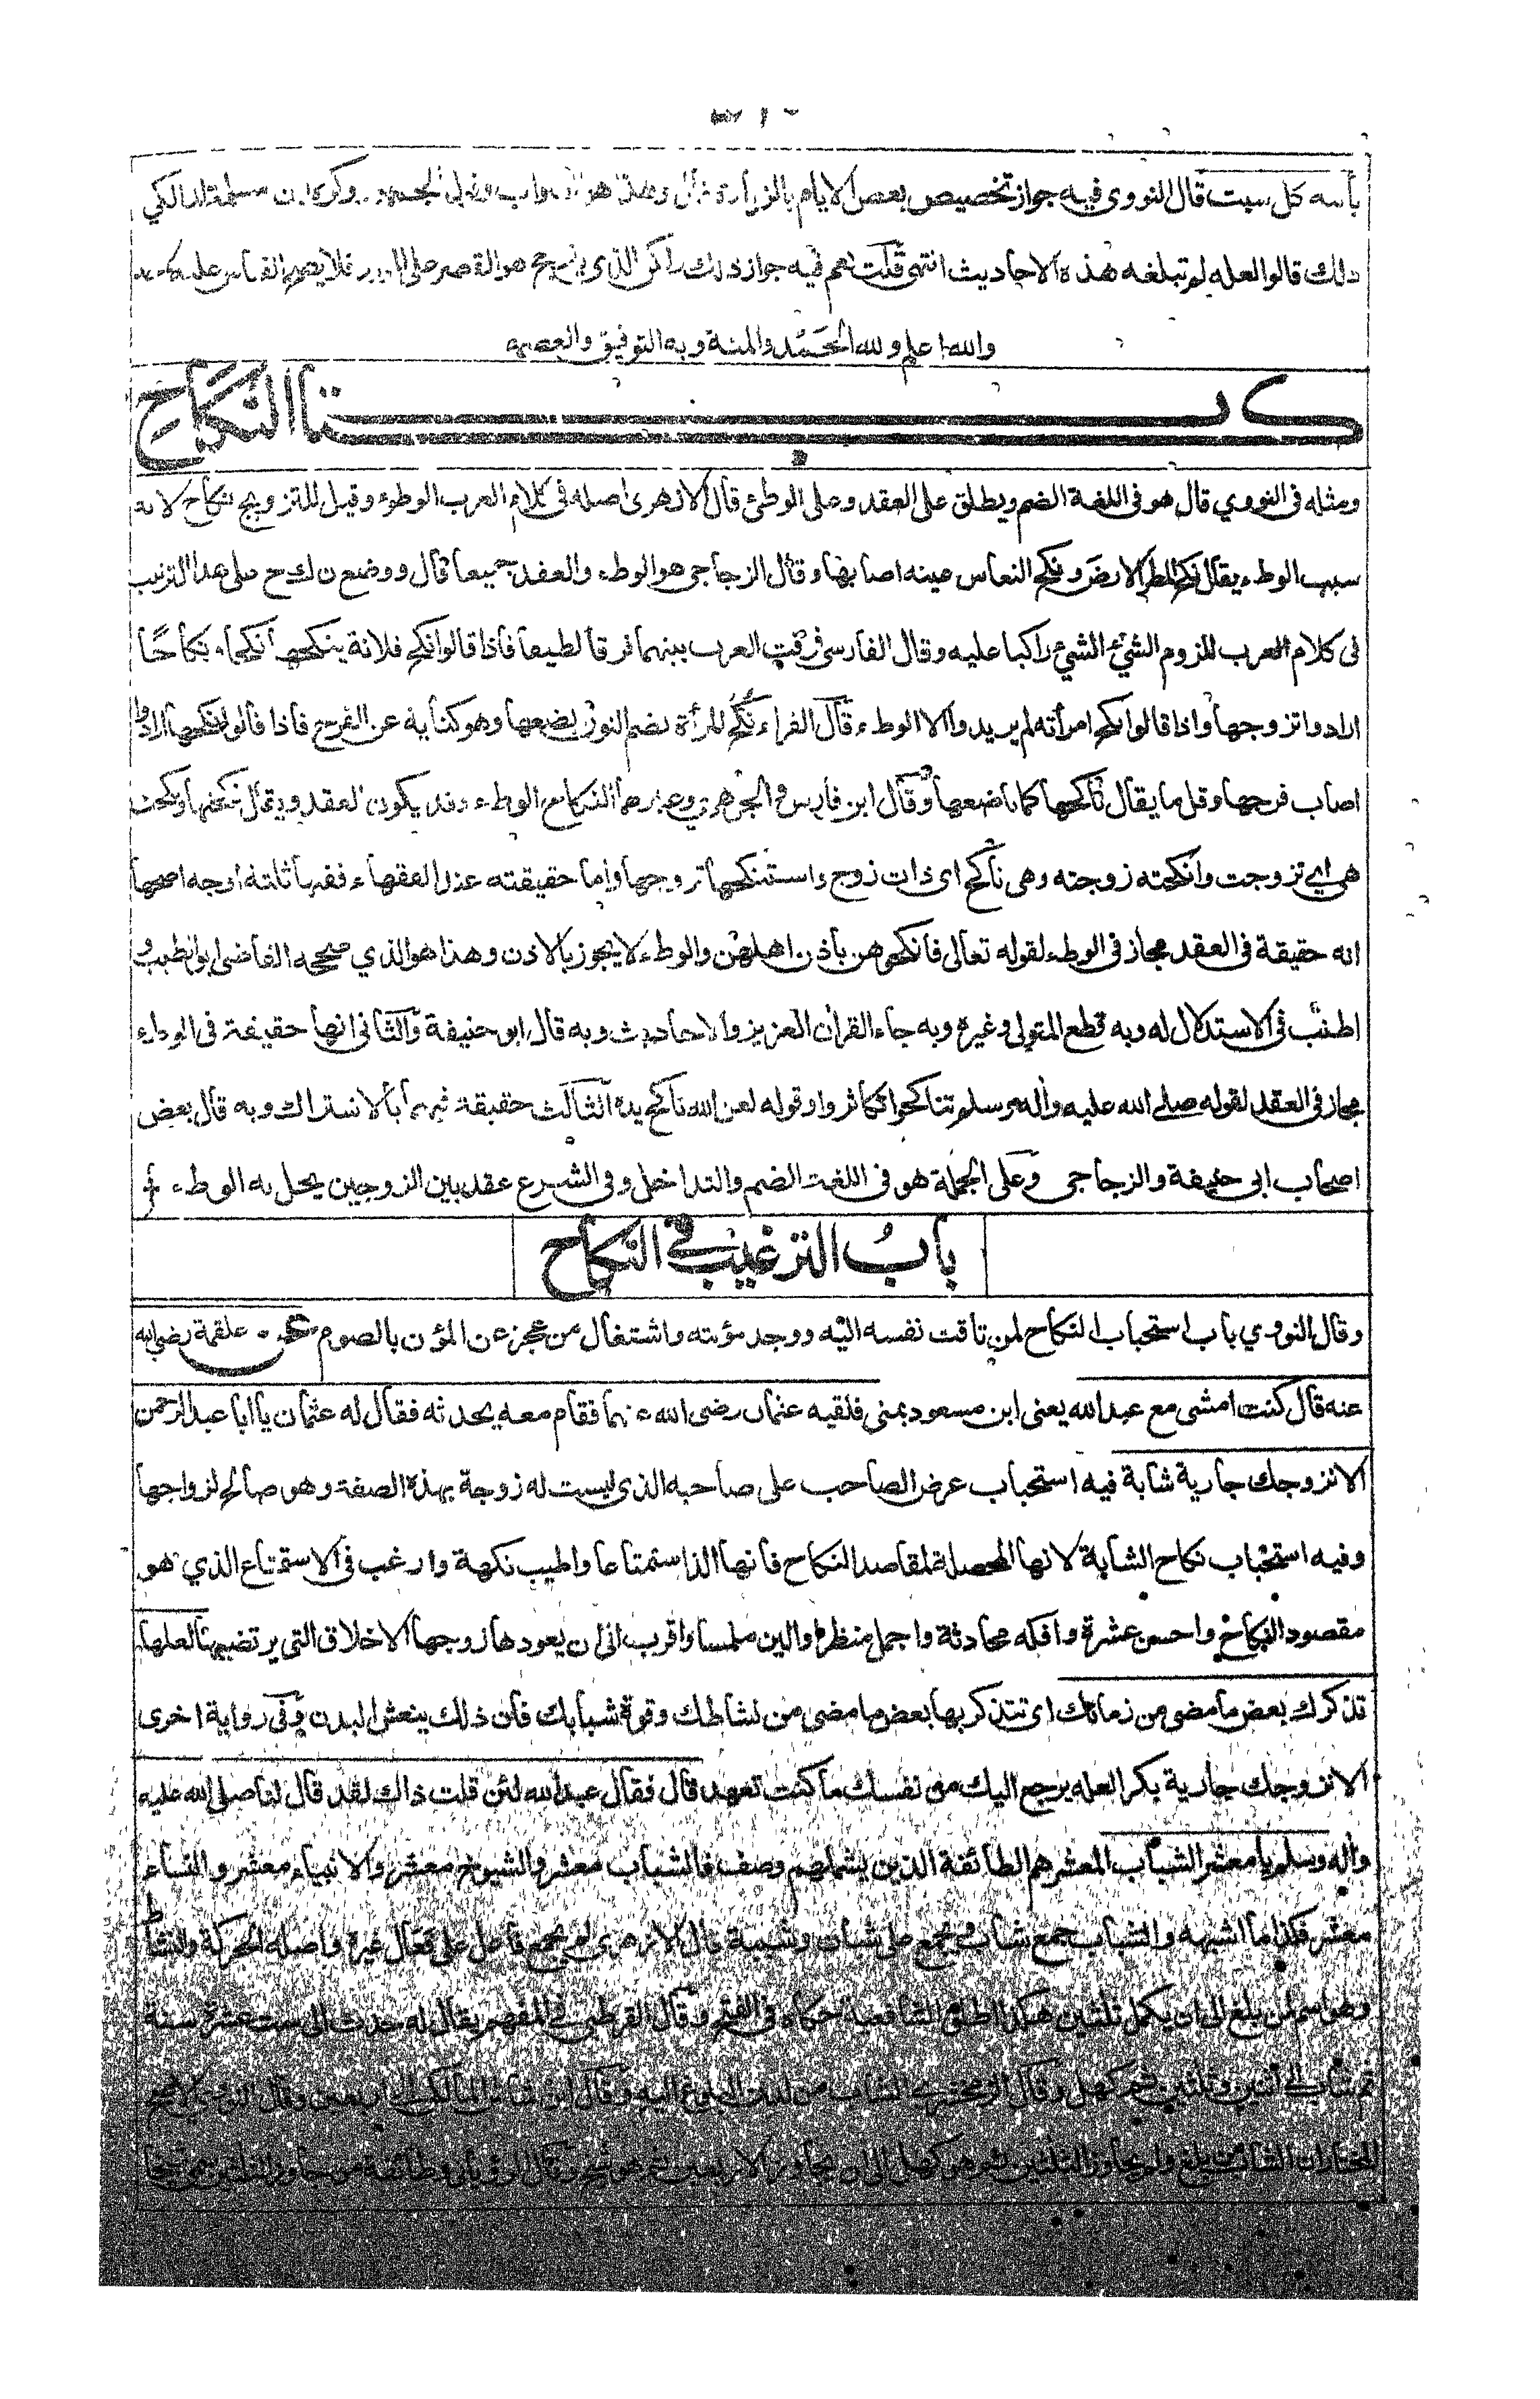 بأسه كل سبت قال النووى فيه جواز تخصيص بعض الايام بالزيارة وهذا هو الصواب وقول الجمهور وكره ابن مسلمة المالكي
ذلك قالوا لعله لم تبلغه هذه الاحاديث انتهى قلت نعم فيه جواز ذلك لكن الذى هو القصر على فلا يصح القياس عليه
والله اعلم ولله الحمد والمنة وبه التوفيق والعصمة
كتاب النكاح
ومثله فى النووي قال هو فى اللغة الضم ويطلق على العقد وعلى الوطئ قال الازهرى اصله فى كلام العرب الوطؤ وقيل للتزويج نكاح لانه
سبب الوطء يقال نكح المطر الارض ونكح النعاس عينه اصابها وقال الزجاجى هو الوطء والعقد جميعا قال ووضع ن ك ح على هذا الترتيب
فى كلام العرب للزوم الشئ الشئ راكبا عليه وقال الفارسى فرقت العرب بينهما فرقا لطيفا فاذا قالوا نكح فلانة ينكحها نكحا ونكاحًا
ارادوا تزوجها واذا قالوا نكح امرأته لم يريدوا الا الوطء قال الفراء نكح المرأة بضم النون بضعها وهو كناية عن الفرج فاذا قالوا نكحها ارادوا
اصاب فرجها وقل ما يقال ناكحها كما باضعها وقال ابن فارس والجوهري وغيرهما النكاح الوطء وقد يكون العقد ويقال نكحتها ونكحت
هى اي تزوجت وانكحته زوجته وهى ناكح اى ذات زوج واستنكحها تزوجها واما حقيقته عند الفقهاء ففيها ثلثة اوجه اصحها
انه حقيقة فى العقد مجاز فى الوطء لقوله تعالى فانكحوهن باذن اهلهن والوطء لا يجوز بالاذن وهذا هو الذي صححه القاضى ابو الطيب و
اطنب فى الاستدلال له وبه قطع المتولى وغيره وبه جاء القرآن العزيز والاحاديث وبه قال ابو حنيفة والثانى انها حقيقة فى الوطء
مجاز فى العقد لقوله صلى الله عليه وآله وسلم تناكحوا تكاثروا وقوله لعن الله ناكح يده الثالث حقيقة فيهما بالاشتراك وبه قال بعض
اصحاب ابى حنيفة والزجاجى وعلى الجملة هو فى اللغة الضم والتداخل وفى الشرع عقد بين الزوجين يحل به الوطء
باب الترغيب فى النكاح
وقال النووي باب استحباب النكاح لمن تاقت نفسه اليه ووجد مؤنته واشتغال من عجز عن المؤن بالصوم عن علقمة رضى الله
عنه قال كنت امشى مع عبد الله يعنى ابن مسعود بمنى فلقيه عثمان رضى الله عنهما فقام معه يحدثه فقال له عثمان يا ابا عبد الرحمن
الا نزوجك جارية شابة فيه استحباب عرض الصاحب على صاحبه الذى ليست له زوجة بهذه الصفة وهو صالح لزواجها
وفيه استحباب نكاح الشابة لانها المحصلة لمقاصد النكاح فانها الذ استمتاعا واطيب نكهة وارغب فى الاستمتاع الذي هو
مقصود النكاح واحسن عشرة وافكه محادثة واجمل منظرا والين ملمسا واقرب الى ان يعودها زوجها الاخلاق التى يرتضيها لعلها
تذكرك بعض ما مضى من زمانك اى تتذكر بها بعض ما مضى من نشاطك وقوة شبابك فان ذلك ينعش البدن وفى رواية اخرى
الا نزوجك جارية بكرا لعله يرجع اليك من نفسك ما كنت تعهد قال فقال عبد الله لئن قلت ذاك لقد قال لنا صلى الله عليه
وآله وسلم يا معشر الشباب المعشر هم الطائفة الذين يشملهم وصف فالشباب معشر والشيوخ معشر والانبياء معشر والنساء
معشر فكذا ما اشبهه والشباب جمع شاب ويجمع على شبان وشببة قال الازهرى لم يجمع فاعل على فعال غيره واصله الحركة والنشاط
وهو اسم لمن بلغ الى ان يكمل ثلثين هكذا اطلق الشافعية حكاه فى الفتح وقال القرطبى فى المفهم يقال له حدث الى ست عشرة سنة
ثم شاب الى اثنين وثلثين ثم كهل وقال الزمخشرى الشاب من لدن البلوغ الى وقال ابن شاس المالكى الى اربعين وقال النووى الاصح
المختار ان الشاب من بلغ ولم يجاوز الثلثين ثم هو كهل الى ان يجاوز الاربعين ثم هو شيخ وقال الرويانى وطائفة من جاوز الثلثين سمى شيخا